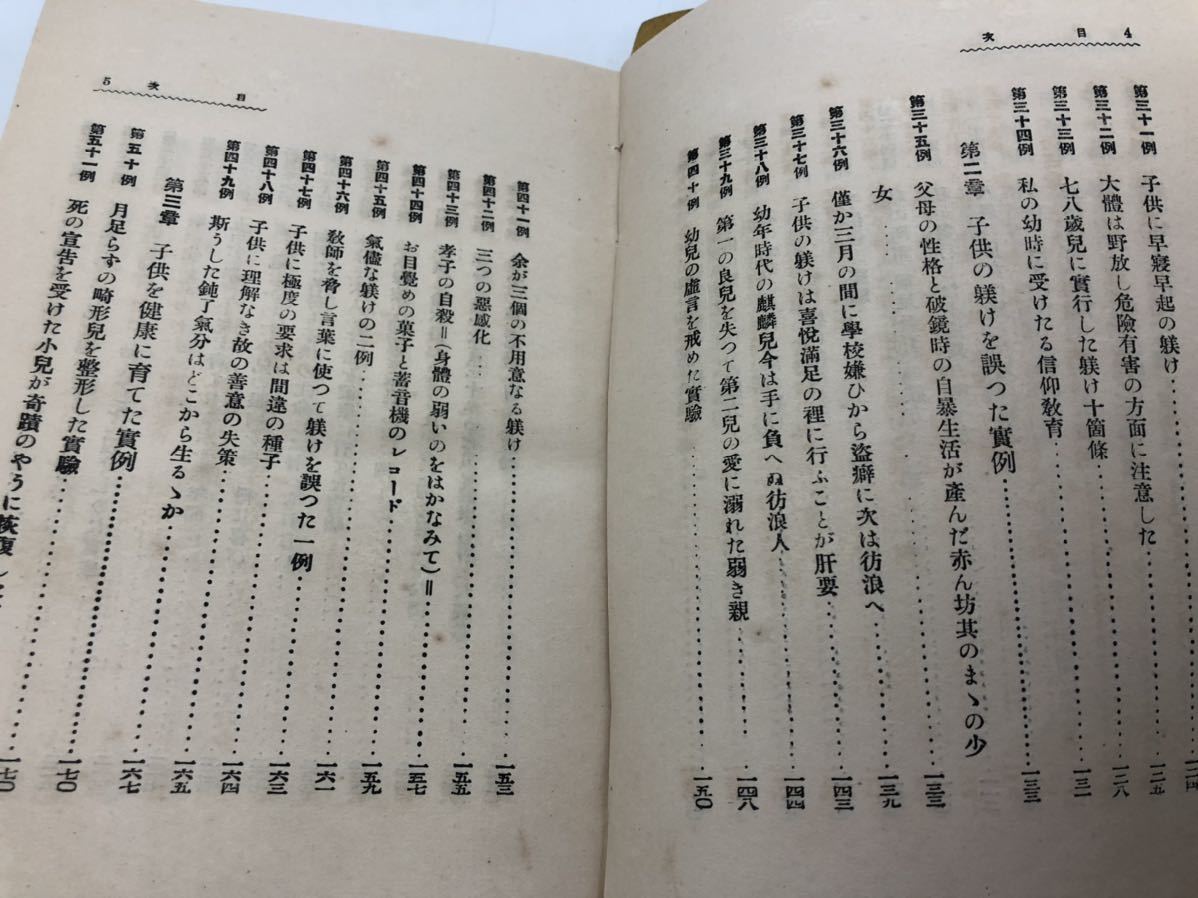 4 目次
第三十一例 子供に早寢早起の躾け 一二四
第三十二例 大體は野放し危險有害の方面に注意した 一二五
第三十三例 七八歳兒に實行した躾け十箇條 一二八
第三十四例 私の幼時に受けたる信仰教育 一三一
第二章 子供の躾けを誤つた實例 一三三
第三十五例 父母の性格と破鏡時の自暴生活が產んだ赤ん坊其のまゝの少
女 一三三
第三十六例 僅か三月の間に學校嫌ひから盜癖に次は彷浪へ 一三九
第三十七例 子供の躾けは喜悅滿足の裡に行ふことが肝要 一四三
第三十八例 幼年時代の麒麟兒今は手に負へぬ彷浪人 一四四
第三十九例 第一の良兒を失つて第二兒の愛に溺れた弱き親 一四八
第四十例 幼兒の虛言を戒めた實驗 一五〇
目次 5
第四十一例 余が三個の不用意なる躾け 一五三
第四十二例 三つの惡感化 一五五
第四十三例 孝子の自殺=(身體の弱いのをはかなみて)= 一五七
第四十四例 お目覺めの菓子と蓄音機のレコード 一五九
第四十五例 氣儘な躾けの二例 一六一
第四十六例 教師を脅し言葉に使つて躾けを誤つた一例 一六三
第四十七例 子供に極度の要求は間違の種子 一六四
第四十八例 子供に理解なき故の善意の失策 一六五
第四十九例 斯うした鈍了氣分はどこから生るゝか 一六七
第三章 子供を健康に育てた實例 一七〇
第五十例 月足らずの畸形兒を整形した實驗 一七〇
第五十一例 死の宣告を受けた小兒が奇蹟のやうに恢復し